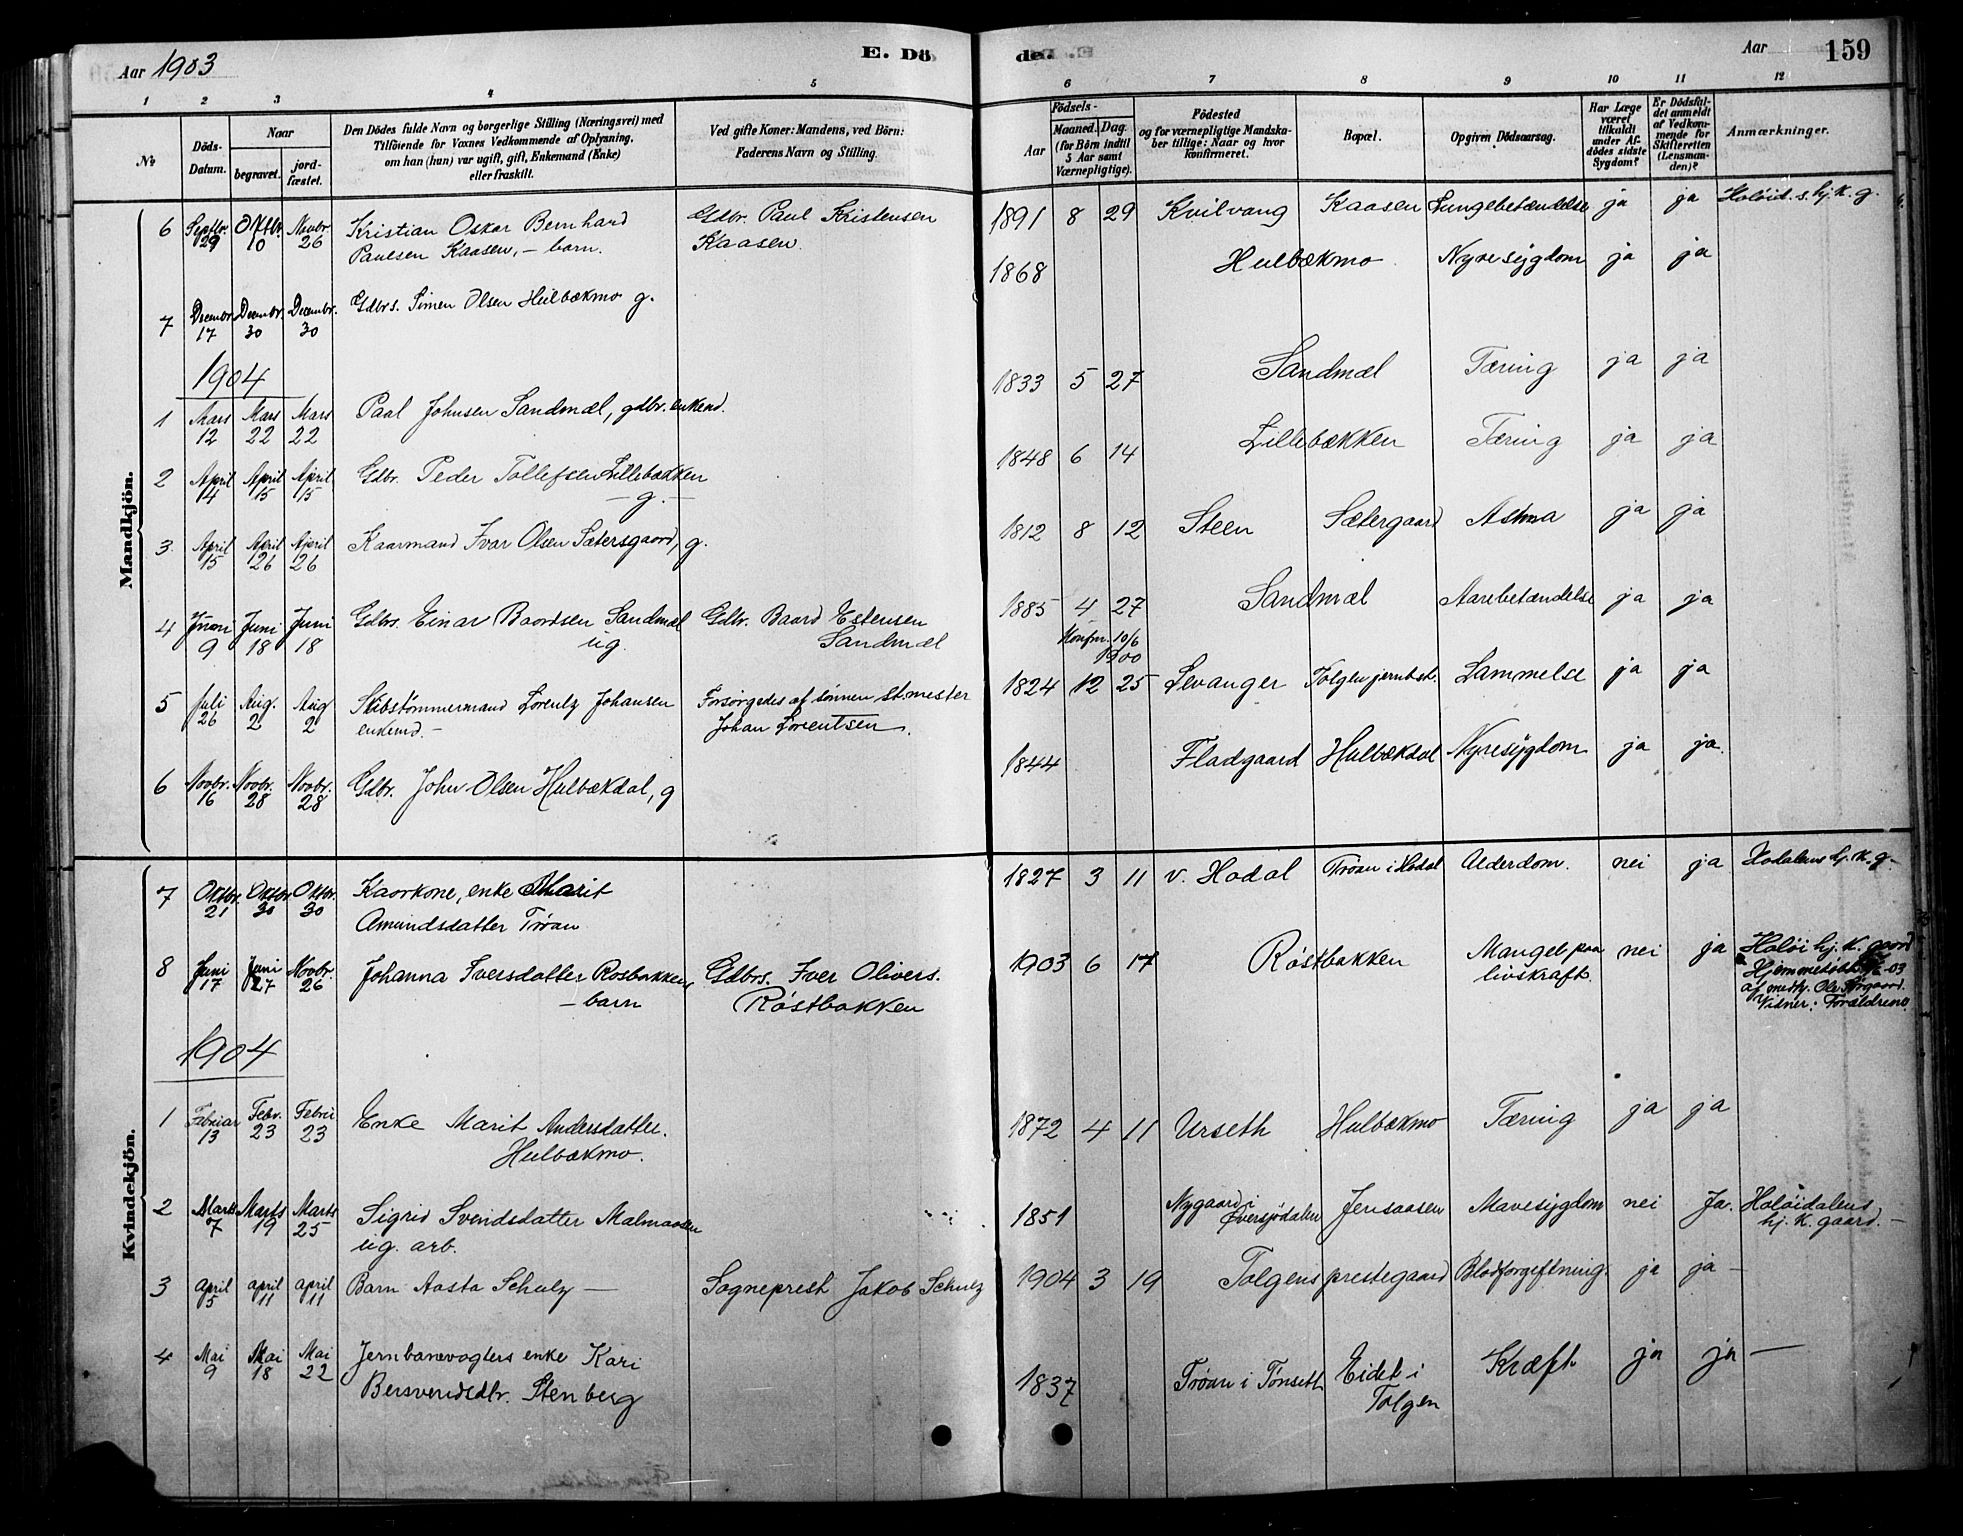 Aar 1903 E. Dö de. Aar 159
1 2 3 4 5 6 7 8 9 10 11 12
№ Döds-Datum. Naar begravet. jord-fæstet. Den Dödes fulde Navn og borgerlige Stilling (Næringsvei) med Tilföiende for Voxnes Vedkommende af Oplysning, om han (hun) var ugift, gift, Enkemand (Enke) eller fraskilt. Ved gifte Koner: Mandens, ved Börn: Faderens Navn og Stilling. Födsels- Aar Maaned. Dag. (for Börn indtil 5 Aar samt Værnepligtige). Födested og for værnepligtige Mandskaber tillige: Naar og hvor konfirmeret. Bopæl. Opgiven Dödsaarsag. Har Læge været tilkaldt under Afdödes sidste Sygdom? Er Dödsfaldet anmeldt af Vedkommende for Skifteretten (Lensmanden)? Anmærkninger.
Mandkjön.
6 Septbr. 29 Oktbr. 10 Novbr. 26 Kristian Oskar Bernhard Gdbr. Paul Kristensen 1891 8 29 Kvilvang Kaasen Lungebetændelse ja ja Holöid. s. hj. K. g.
Paulsen Kaasen, - barn. Kaasen.
7 Decembr. 17 Decembr. 30 Decembr. 30 Gdbrs. Simen Olsen Hulbækmo g. 1868 Hulbækmo Nyresygdom ja ja
1904
1 Mars 12 Mars 22 Mars 22 Paal Johnsen Sandmæl, gdbr. enkemd. 1833 5 27 Sandmæl Tæring ja ja
2 April 4 April 15 April 15 Gdbr. Peder Tollefsen Lillebækken 1848 6 14 Lillebækken Tæring ja ja
- g. -
3 April 15 April 26 April 26 Kaarmand Ivar Olsen Sætersgaard, g. 1812 8 12 Steen Sætergaard Astma ja ja
4 Juni 9 Juni 18 Juni 18 Gdbrs. Einar Baardsen Sandmæl Gdbr. Baard Estensen 1885 4 27 Sandmæl Aarebetændelse ja ja
ug. Sandmæl Konfm. 10/6 1900
5 Juli 26 Aug. 2 Aug 2 Skibstömmermand Lorentz Johansen Forsörgedes af sönnen st.mester 1824 12 25 Levanger Tolgen jernbst. Lammelse ja ja
enkemd. - Johan Lorentsen.
6 Novbr. 16 Novbr. 28 Novbr. 28 Gdbr. John Olsen Hulbækdal, g 1844 Fladgaard Hulbækdal Nyresygdom ja ja.
Kvindekjön.
7 Oktbr. 21 Oktbr. 30 Oktbr. 30 Kaarkone, enke Marit 1827 3 11 v. Hodal Tröan i Hodal Alderdom. nei ja Hodalens hj. K. g.
Amundsdatter Tröan
8 Juni 17 Juni 27 Novbr. 26 Johanna Iversdatter Rosbakken Gdbrs. Iver Olivers. 1903 6 17 Röstbakken Mangel paa livskraft. nei ja Holöi hj. K. gaard
- barn Röstbakken Hjemmedöbt -03
Vidner: Forældrene.
1904
1 Februar 13 Febr. 23 Febru 23 Enke Marit Andersdatter. 1872 4 11 Urseth Hulbækmo Tæring ja ja
Hulbækmo.
2 Marts 7 Marts 19 Marts 25 Sigrid Svendsdatter Malmaasen 1851 Nygaard i Øversjödalen Jensaasen Mavesygdom nei Ja. Holöidalens hj. K. gaard. -
ug. arb.
3 april 5 april 11 april 11 Barn Aasta Schulz - Sogneprest Jakob Schulz 1904 3 19 Tolgens prestegaard Blodforgiftning. ja ja -
4 Mai 9 Mai 18 Mai 22 Jernbanevogters enke Kari 1837 Tröan i Tönseth Eidet i Tolgen Kræft. ja ja -
Bersvendsdtr. Stenberg